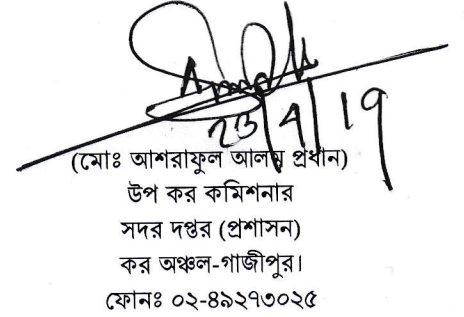 23/4/19
(মোঃ আশরাফুল আলম প্রধান)
উপ কর কমিশনার
সদর দপ্তর (প্রশাসন)
কর অঞ্চল-গাজীপুর।
ফোনঃ ০২-৪৯২৭৩০২৫